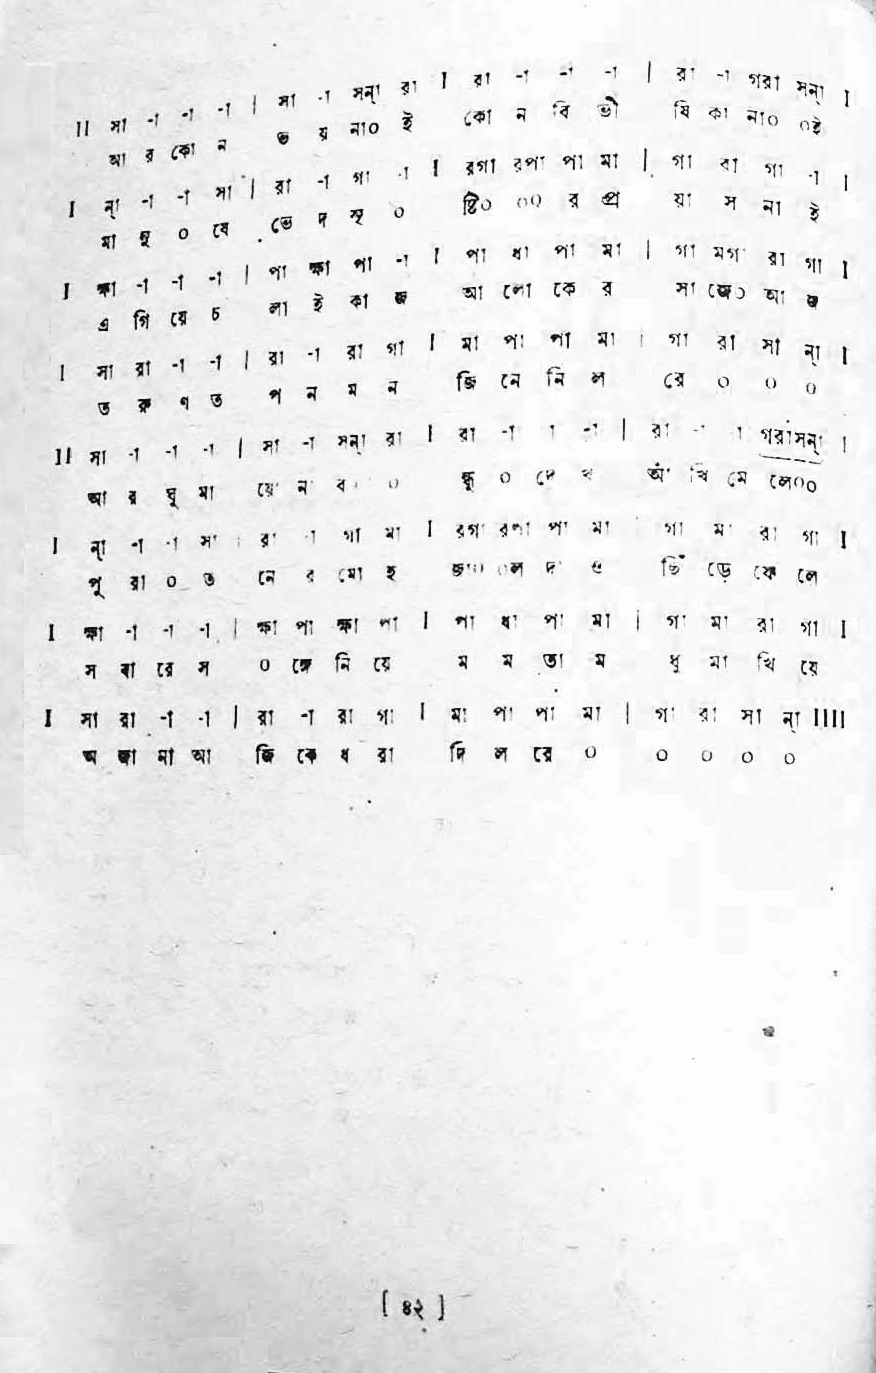 II সা -া -া -া | সা -া সন্‌া রা I রা -া -া -া | রা -া গরা সন্‌া I
আ র কো ন ভ য় না০ ই কো ন বি ভী ষি কা না০ ০ই
I ন্‌া -া -া সা | রা -া গা -া I রগা রপা পা মা | গা রা গা -া I
মা নু ০ ষে ভে দ সৃ ০ ষ্টি০ ০০ র প্র য়া স না ই
I ক্ষা -া -া -া | পা ক্ষা পা -া I পা ধা পা মা | গা মগা রা গা I
এ গি য়ে চ লা ই কা জ আ লো কে র সা জে০ আ জ
I সা রা -া -া | রা -া রা গা I মা পা পা মা | গা রা সা ন্‌া I
ত রু ণ ত প ন ম ন জি নে নি ল রে ০ ০ ০
II সা -া -া -া | সা -া সন্‌া রা I রা -া -া -া | রা -া -া গরাসন্‌া I
আ র ঘু মা য়ো না ব ০ ন্ধু ০ দে খ আঁ খি মে লে০০
I ন্‌া -া -া সা | রা -া গা মা I রগা রপা পা মা | গা মা রা গা I
পু রা ০ ত নে র মো হ জা০ ০ল দা ও ছিঁ ড়ে ফে লে
I ক্ষা -া -া -া | ক্ষা পা ক্ষা পা I পা ধা পা মা | গা মা রা গা I
স বা রে স ০ ঙ্গে নি য়ে ম ম তা ম ধু মা খি য়ে
I সা রা -া -া | রা -া রা গা I মা পা পা মা | গা রা সা ন্‌া IIII
অ জা না আ জি কে ধ রা দি ল রে ০ ০ ০ ০ ০
[ ৪২ ]